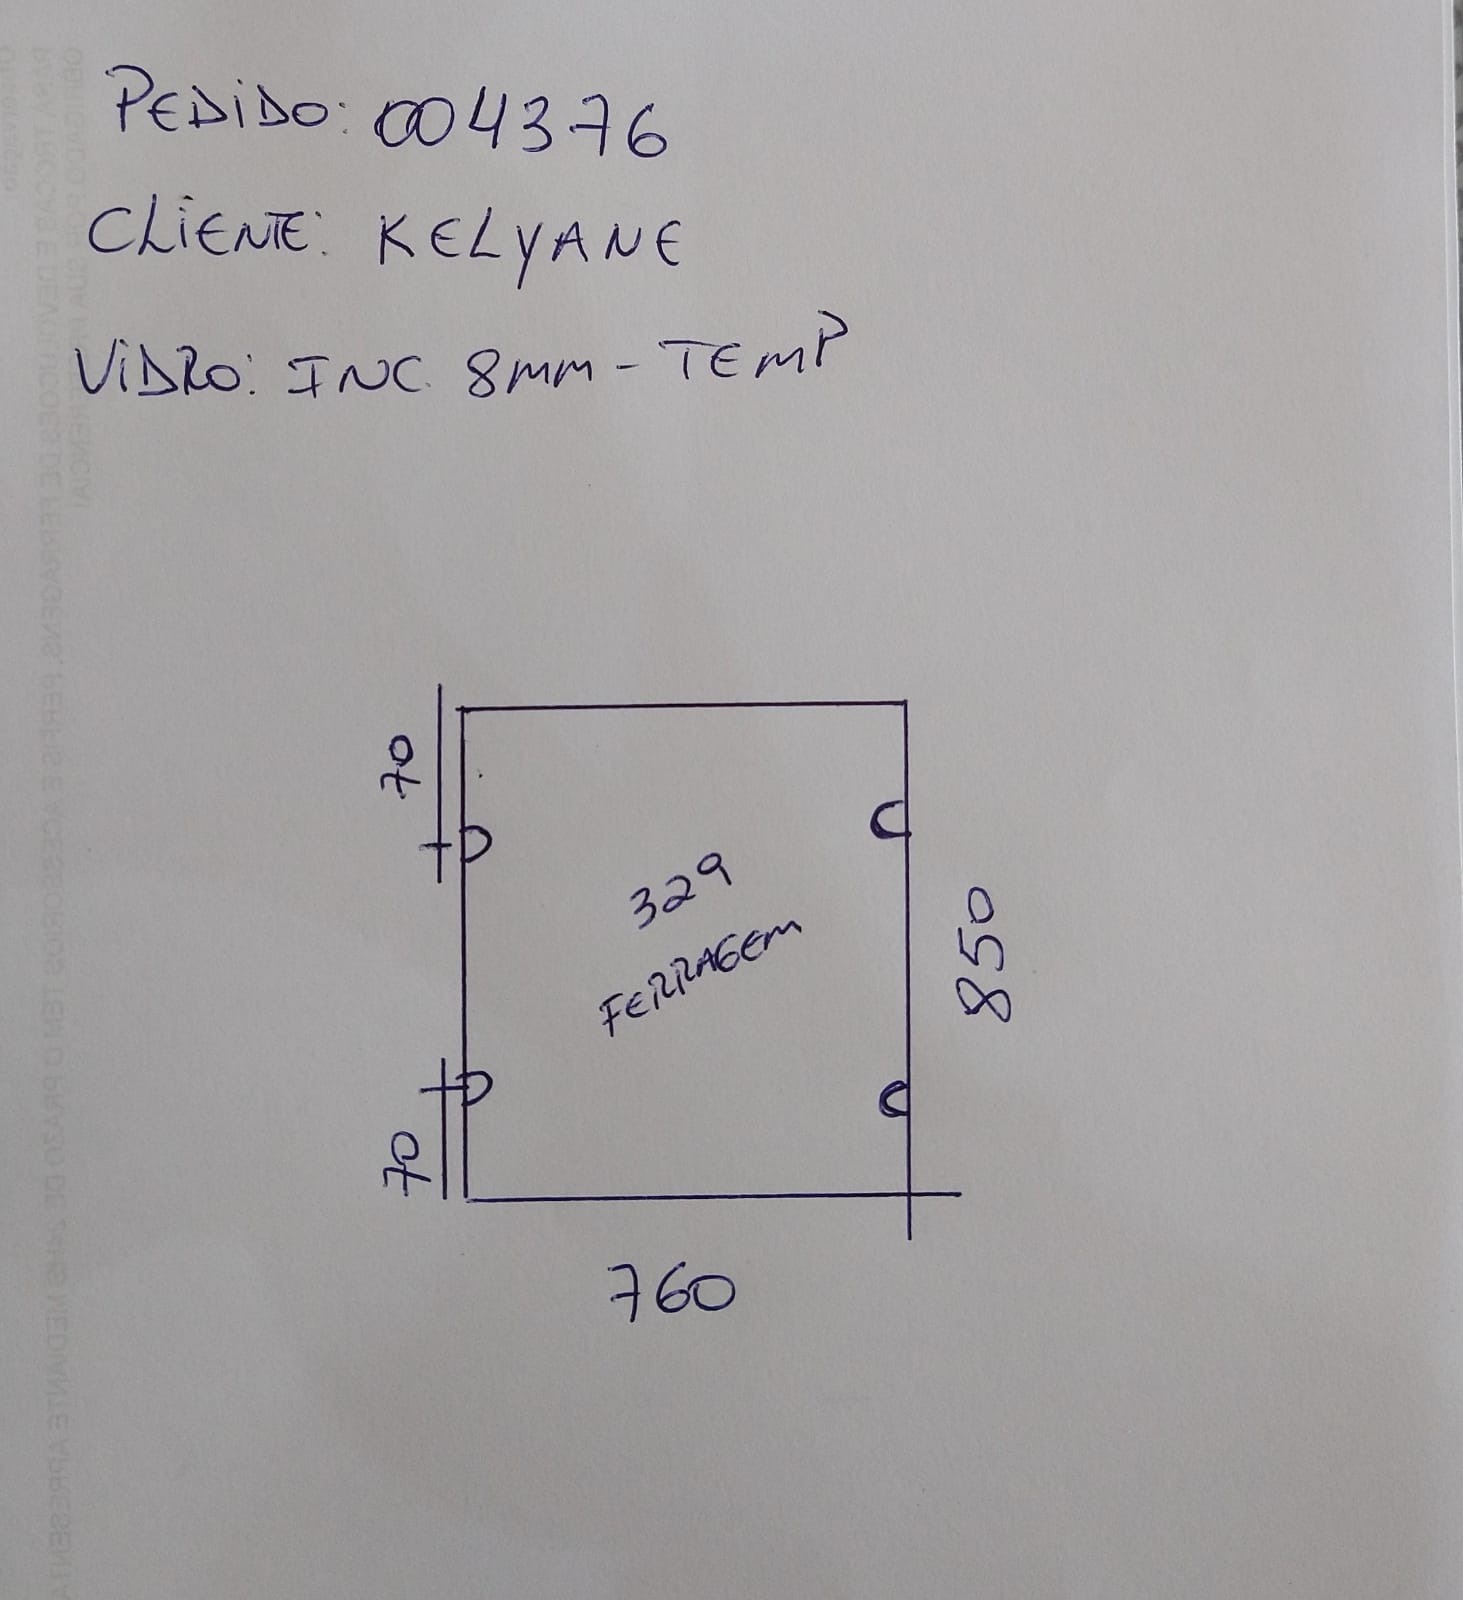 PEDiDO: 004376
CLiENTE: KELYANE
ViDRO: INC. 8mm - TEMP
70
329
FERRAGEM
850
70
760